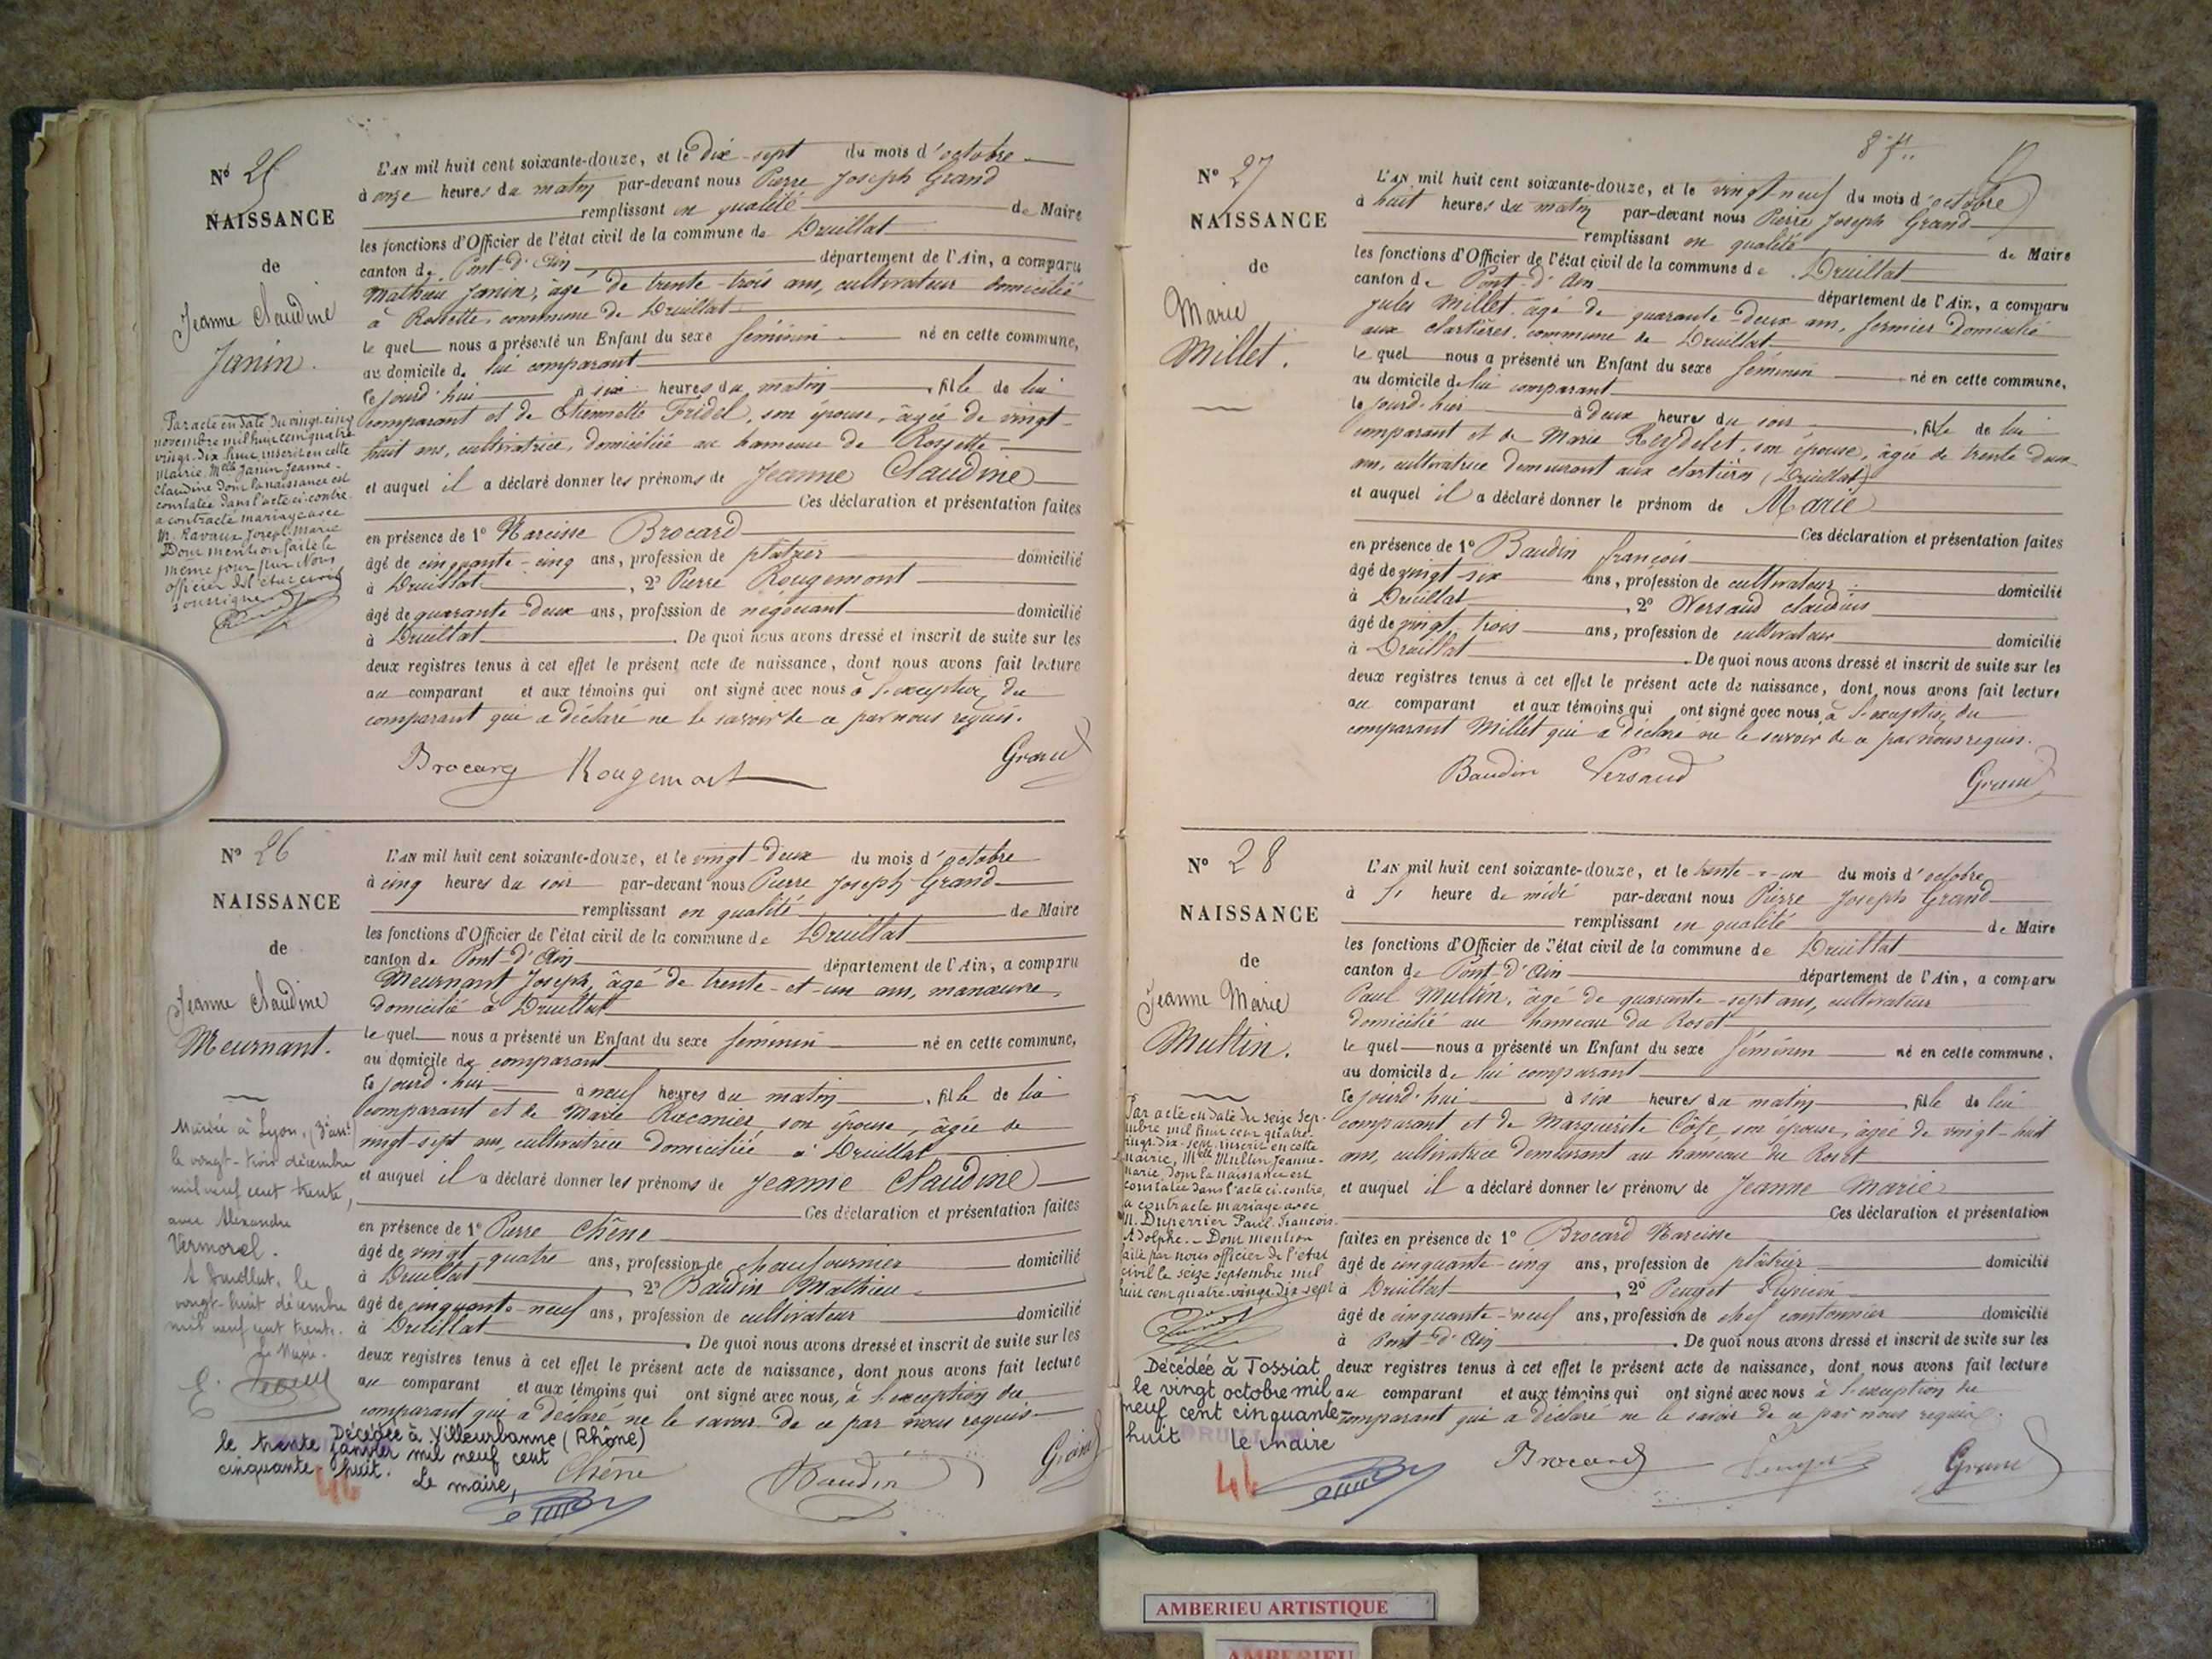 N° 25
NAISSANCE
de
Jeanne Claudine
Janin.
Par acte en date du vingt-cinq
novembre mil huit cent quatre
vingt-dix huit inscrit en cette
Mairie, Melle Janin Jeanne-
Claudine dont la naissance est
constatée dans l'acte ci-contre
a contracté mariage avec
M. Ravaux Joseph-Marie
Dont mention faite le
même jour par Nous
officier de l'état civil
soussigné
L'AN mil huit cent soixante-douze, et le dix-sept du mois d'octobre
à onze heures du matin par-devant nous Pierre Joseph Grand
remplissant en qualité de Maire
les fonctions d'Officier de l'état civil de la commune de Druillat
canton de Pont-d'Ain département de l'Ain, a comparu
Mathieu Janin, âgé de trente-trois ans, cultivateur domicilié
à Rossette, commune de Druillat
le quel nous a présenté un Enfant du sexe féminin né en cette commune,
au domicile de lui comparant
le jourd'hui à six heures du matin, fille de lui
comparant et de Etiennette Fridel, son épouse, âgée de vingt-
huit ans, cultivatrice, domiciliée au hameau de Rossette
et auquel il a déclaré donner les prénoms de Jeanne Claudine
Ces déclaration et présentation faites
en présence de 1° Narcisse Brocard
âgé de cinquante-cinq ans, profession de plâtrier domicilié
à Druillat, 2° Pierre Rougemont
âgé de quarante-deux ans, profession de négociant domicilié
à Druillat. De quoi nous avons dressé et inscrit de suite sur les
deux registres tenus à cet effet le présent acte de naissance, dont nous avons fait lecture
au comparant et aux témoins qui ont signé avec nous à l'exception du
comparant qui a déclaré ne le savoir de ce par nous requis.
Brocard Rougemont Grand
N° 26
NAISSANCE
de
Jeanne Claudine
Meurnant.
Mariée à Lyon, (3e arrt)
le vingt-trois décembre
mil neuf cent trente,
avec Alexandre
Vermorel.
A Druillat, le
vingt-huit décembre
mil neuf cent trente.
Le Maire.
L'AN mil huit cent soixante-douze, et le vingt-deux du mois d'octobre
à cinq heures du soir par-devant nous Pierre Joseph Grand
remplissant en qualité de Maire
les fonctions d'Officier de l'état civil de la commune de Druillat
canton de Pont-d'Ain département de l'Ain, a comparu
Meurnant Joseph, âgé de trente-et-un ans, manœuvre,
domicilié à Druillat
le quel nous a présenté un Enfant du sexe féminin né en cette commune,
au domicile du comparant
le jourd'hui à neuf heures du matin, fille de lui
comparant et de Marie son épouse, âgée de
vingt-sept ans, cultivatrice domiciliée à Druillat
et auquel il a déclaré donner les prénoms de Jeanne Claudine
Ces déclaration et présentation faites
en présence de 1° Pierre Chêne
âgé de vingt-quatre ans, profession de chaufournier domicilié
à Druillat 2° Baudin Mathieu
âgé de cinquante-neuf ans, profession de cultivateur domicilié
à Druillat. De quoi nous avons dressé et inscrit de suite sur les
deux registres tenus à cet effet le présent acte de naissance, dont nous avons fait lecture
au comparant et aux témoins qui ont signé avec nous, à l'exception du
comparant qui a déclaré ne le savoir de ce par nous requis
Décédée à Villeurbanne (Rhône)
le trente janvier mil neuf cent
cinquante huit.
Le maire,
Chêne Baudin Grand
46
8 f.
N° 27
NAISSANCE
de
Marie
Millet.
L'AN mil huit cent soixante-douze, et le vingt-neuf du mois d'octobre
à huit heures du matin par-devant nous Pierre Joseph Grand
remplissant en qualité de Maire
les fonctions d'Officier de l'état civil de la commune de Druillat
canton de Pont-d'Ain département de l'Ain, a comparu
Jules Millet, âgé de quarante-deux ans, fermier domicilié
aux clartières, commune de Druillat
le quel nous a présenté un Enfant du sexe féminin né en cette commune,
au domicile de lui comparant
le jourd'hier à deux heures du soir, fille de lui
comparant et de Marie Reydelet, son épouse, âgée de trente deux
ans, cultivatrice demeurant aux clartières (Druillat)
et auquel il a déclaré donner le prénom de Marie
Ces déclaration et présentation faites
en présence de 1° Baudin françois
âgé de vingt-six ans, profession de cultivateur domicilié
à Druillat, 2° Versaud claudius
âgé de vingt-trois ans, profession de cultivateur domicilié
à Druillat. De quoi nous avons dressé et inscrit de suite sur les
deux registres tenus à cet effet le présent acte de naissance, dont nous avons fait lecture
au comparant et aux témoins qui ont signé avec nous à l'exception du
comparant Millet qui a déclaré ne le savoir de ce par nous requis.
Baudin Versaud Grand
N° 28
NAISSANCE
de
Jeanne Marie
Multin.
Par acte en date du seize sep-
tembre mil huit cent quatre-
vingt-dix-sept, inscrit en cette
mairie, Melle Multin Jeanne-
Marie dont la naissance est
constatée dans l'acte ci-contre,
a contracté mariage avec
M. Duperrier Paul-François-
Adolphe. - Dont mention
faite par nous officier de l'état
civil le seize septembre mil
huit cent quatre-vingt-dix-sept
Décédée à Tossiat
le vingt octobre mil
neuf cent cinquante-
huit
DRUILLAT
le maire
L'AN mil huit cent soixante-douze, et le trente-un du mois d'octobre
à heure de midi par-devant nous Pierre Joseph Grand
remplissant en qualité de Maire
les fonctions d'Officier de l'état civil de la commune de Druillat
canton de Pont-d'Ain département de l'Ain, a comparu
Paul Multin, âgé de quarante-sept ans, cultivateur
domicilié au hameau du Roset
le quel nous a présenté un Enfant du sexe féminin né en cette commune,
au domicile de lui comparant
le jourd'hui à six heures du matin, fille de lui
comparant et de Marguerite Côte, son épouse, âgée de vingt-huit
ans, cultivatrice demeurant au hameau du Roset
et auquel il a déclaré donner les prénoms de Jeanne Marie
Ces déclaration et présentation
faites en présence de 1° Brocard Narcisse
âgé de cinquante-cinq ans, profession de plâtrier domicilié
à Druillat, 2° Peuget
âgé de cinquante-neuf ans, profession de chef cantonnier domicilié
à Pont-d'Ain. De quoi nous avons dressé et inscrit de suite sur les
deux registres tenus à cet effet le présent acte de naissance, dont nous avons fait lecture
au comparant et aux témoins qui ont signé avec nous à l'exception du
comparant qui a déclaré ne le savoir de ce par nous requis.
Brocard Grand
46
AMBERIEU ARTISTIQUE
AMBERIEU